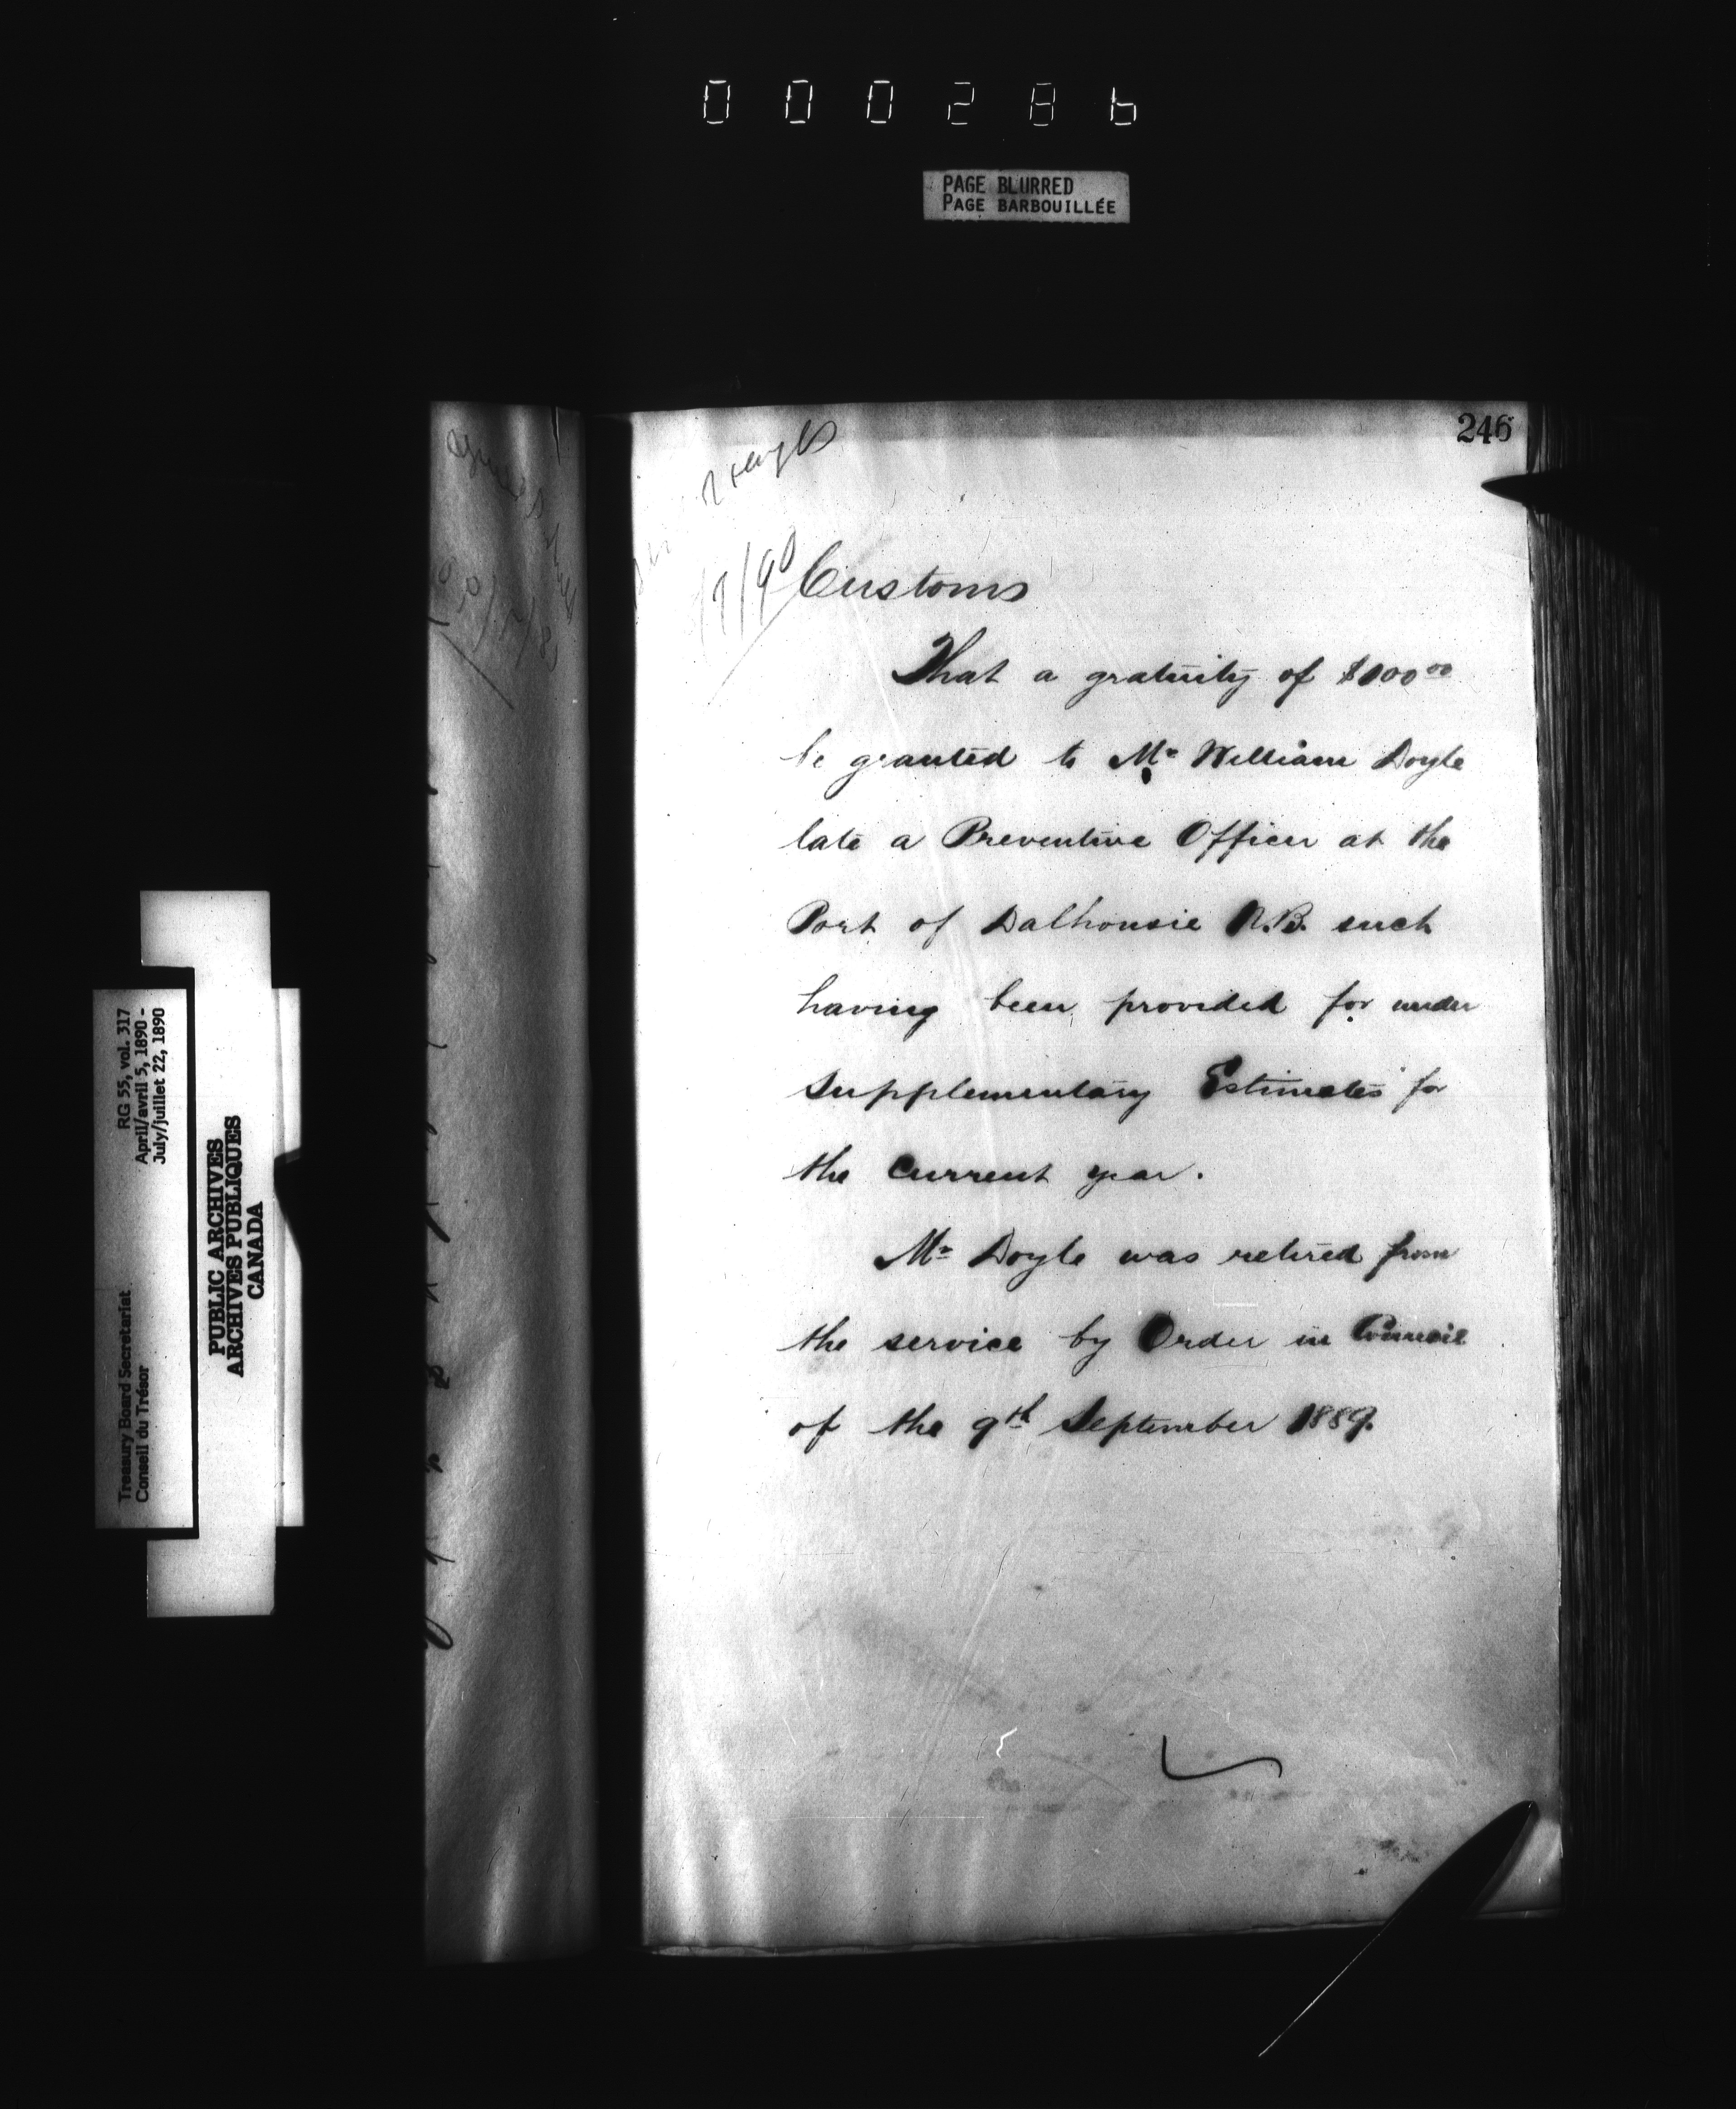 000286
PAGE BLURRED
PAGE BARBOUILLÉE
246
Customs
That a gratuity of $100 00
be granted to Mr William Doyle
late a Preventive Officer at the
Port of Dalhousie N.B. such
having been provided for under
Supplementary Estimates for
the Current year.
Mr Doyle was retired from
the service by Order in Council
of the 9th September 1889.
RG 55, vol. 317
April/avril 5, 1890 -
July/juillet 22, 1890
Treasury Board Secretariat
Conseil du Trésor
PUBLIC ARCHIVES
ARCHIVES PUBLIQUES
CANADA